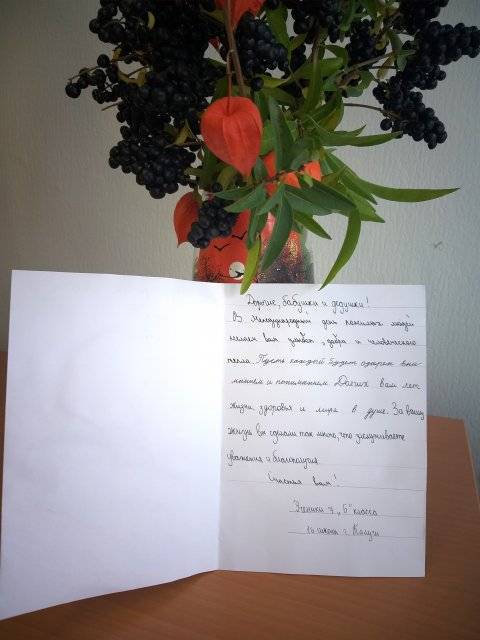 Дорогие, бабушки и дедушки!
В международный день пожилых людей
желаем вам заботы, добра и человеческого
тепла. Пусть каждый будет озарен вни-
манием и пониманием. Долгих вам лет
жизни, здоровья и мира в душе. За вашу
жизнь вы сделали так много, что заслуживаете
уважения и благополучия.
Счастья вам!
Ученики 7 „Б" класса
школы г. Калуги